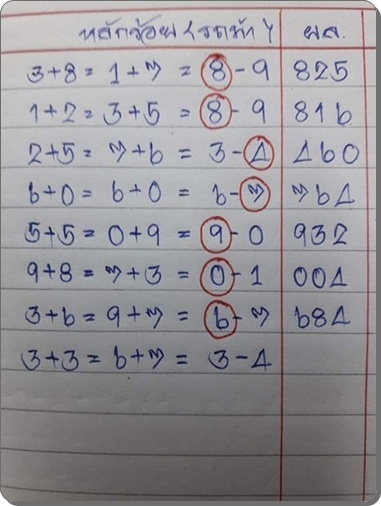 หลักร้อย ผล.
3+8 = 1+7 = 8-9 825
1+2 = 3+5 = 8-9 816
2+5 = 7+6 = 3-4 460
6+0 = 6+0 = 6-7 764
5+5 = 0+9 = 9-0 932
9+8 = 7+3 = 0-1 004
3+6 = 9+7 = 6-7 684
3+3 = 6+7 = 3-4